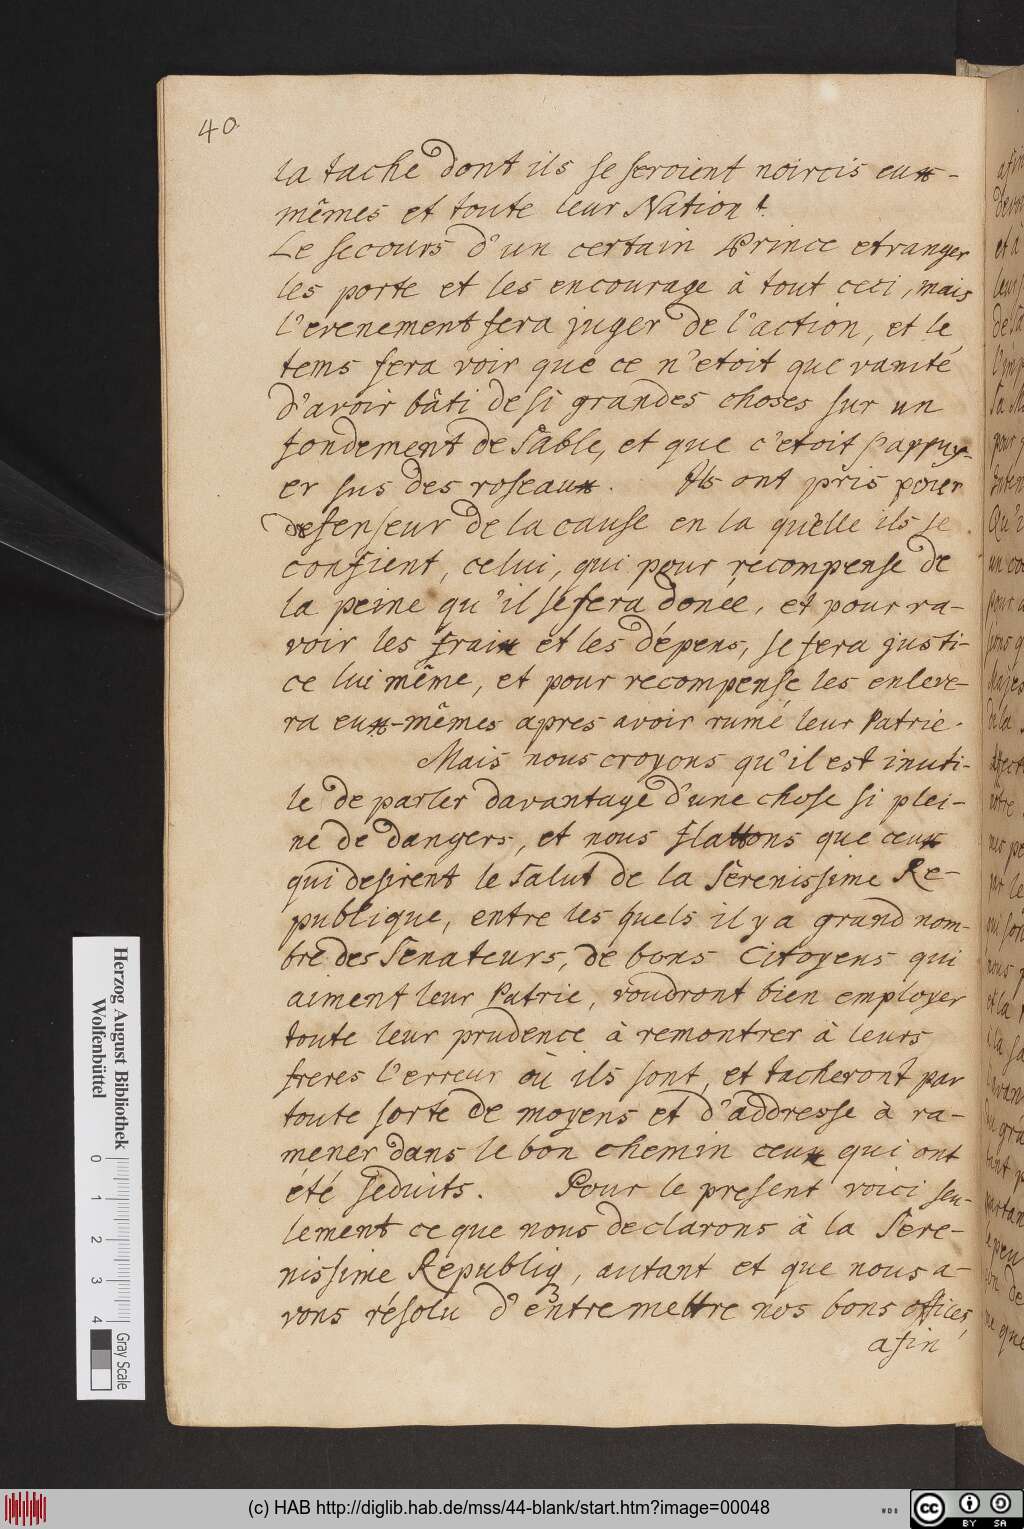 40
la tache dont ils se seroient noircis eux-
mêmes et toute leur Nation!
Le secours d'un certain Prince etranger
les porte et les encourage à tout ceci, mais
l'evenement fera juger de l'action, et le
tems fera voir que ce n'etoit que vanité
d'avoir bâti de si grandes choses sur un
fondement de sable, et que c'etoit s'appuy-
er sus des roseaux. Ils ont pris pour
defenseur de la cause en la quelle ils se
confient, celui, qui pour recompense de
la peine qu'il se fera donée, et pour ra-
voir les fraix et les dépens, se fera justi-
ce lui même, et pour recompense les enleve-
ra eux-mêmes apres avoir ruiné leur Patrie.
Mais nous croyons qu'il est inuti-
le de parler davantage d'une chose si plei-
ne de dangers, et nous flattons que ceux
qui desirent le salut de la Serenissime Re-
publique, entre les quels il y a grand nom-
bre des Senateurs, de bons Citoyens qui
aiment leur Patrie, voudront bien employer
toute leur prudence à remontrer à leurs
freres l'erreur où ils sont, et tacheront par
toute sorte de moyens et d'addresse à ra-
mener dans le bon chemin ceux qui ont
été seduits. Pour le present voici seu-
lement ce que nous declarons à la Sere-
nissime Republiq, autant et que nous a-
vons résolu d'entremettre nos bons offices,
afin
Herzog August Bibliothek
Wolfenbüttel
0 1 2 3 4
Gray Scale
(c) HAB http://diglib.hab.de/mss/44-blank/start.htm?image=00048
WDB
CC BY SA